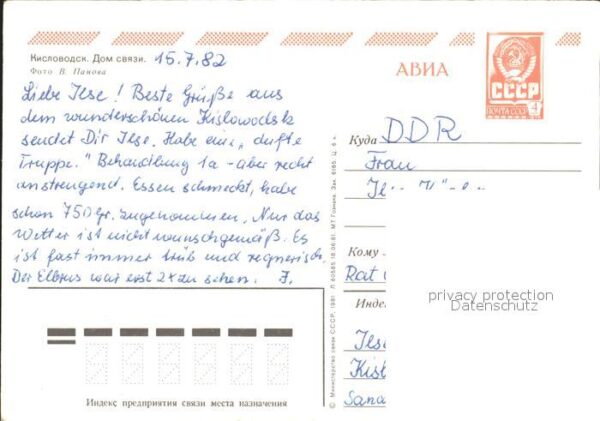 Кисловодск. Дом связи. 15.7.82
Фото В. Панова
АВИА
СССР
ПОЧТА СССР 4
Liebe Ilse! Beste Grüße aus
dem wunderschönen Kislowodsk
sendet Dir Ilse. Habe eine „dufte
Truppe." Behandlung 1a - aber recht
anstrengend. Essen schmeckt, habe
schon 750 Gr. zugenommen. Nur das
Wetter ist nicht wunschgemäß. Es
ist fast immer trüb und regnerisch.
Der Elbrus war erst 2x zu sehen. I.
Куда DDR
Frau
Кому
Rat
Инде
Ilse
Kisl
Sana
privacy protection
Datenschutz
Индекс предприятия связи места назначения
© Министерство связи СССР, 1981. Л 60585 18.06.81. МТ Гознака. Зак. 6165. Ц. 6 к.